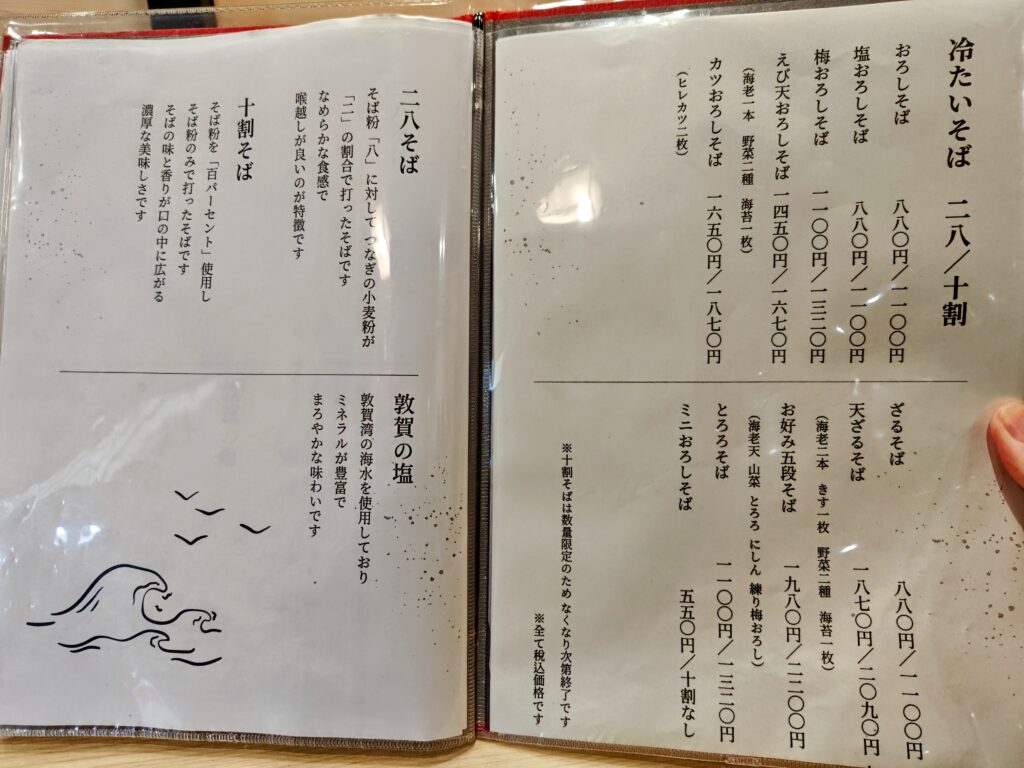 冷たいそば 二八／十割
おろしそば 八八〇円／一一〇〇円
塩おろしそば 八八〇円／一一〇〇円
梅おろしそば 一一〇〇円／一三二〇円
えび天おろしそば 一四五〇円／一六七〇円
（海老一本 野菜二種 海苔一枚）
カツおろしそば 一六五〇円／一八七〇円
（ヒレカツ二枚）
ざるそば 八八〇円／一一〇〇円
天ざるそば 一八七〇円／二〇九〇円
（海老二本 きす一枚 野菜二種 海苔一枚）
お好み五段そば 一九八〇円／二二〇〇円
（海老天 山菜 とろろ にしん 練り梅おろし）
とろろそば 一一〇〇円／一三二〇円
ミニおろしそば 五五〇円／十割なし
※十割そばは数量限定のため なくなり次第終了です
※全て税込価格です
二八そば
そば粉「八」に対してつなぎの小麦粉が
「二」の割合で打ったそばです
なめらかな食感で
喉越しが良いのが特徴です
十割そば
そば粉を「百パーセント」使用し
そば粉のみで打ったそばです
そばの味と香りが口の中に広がる
濃厚な美味しさです
敦賀の塩
敦賀湾の海水を使用しており
ミネラルが豊富で
まろやかな味わいです